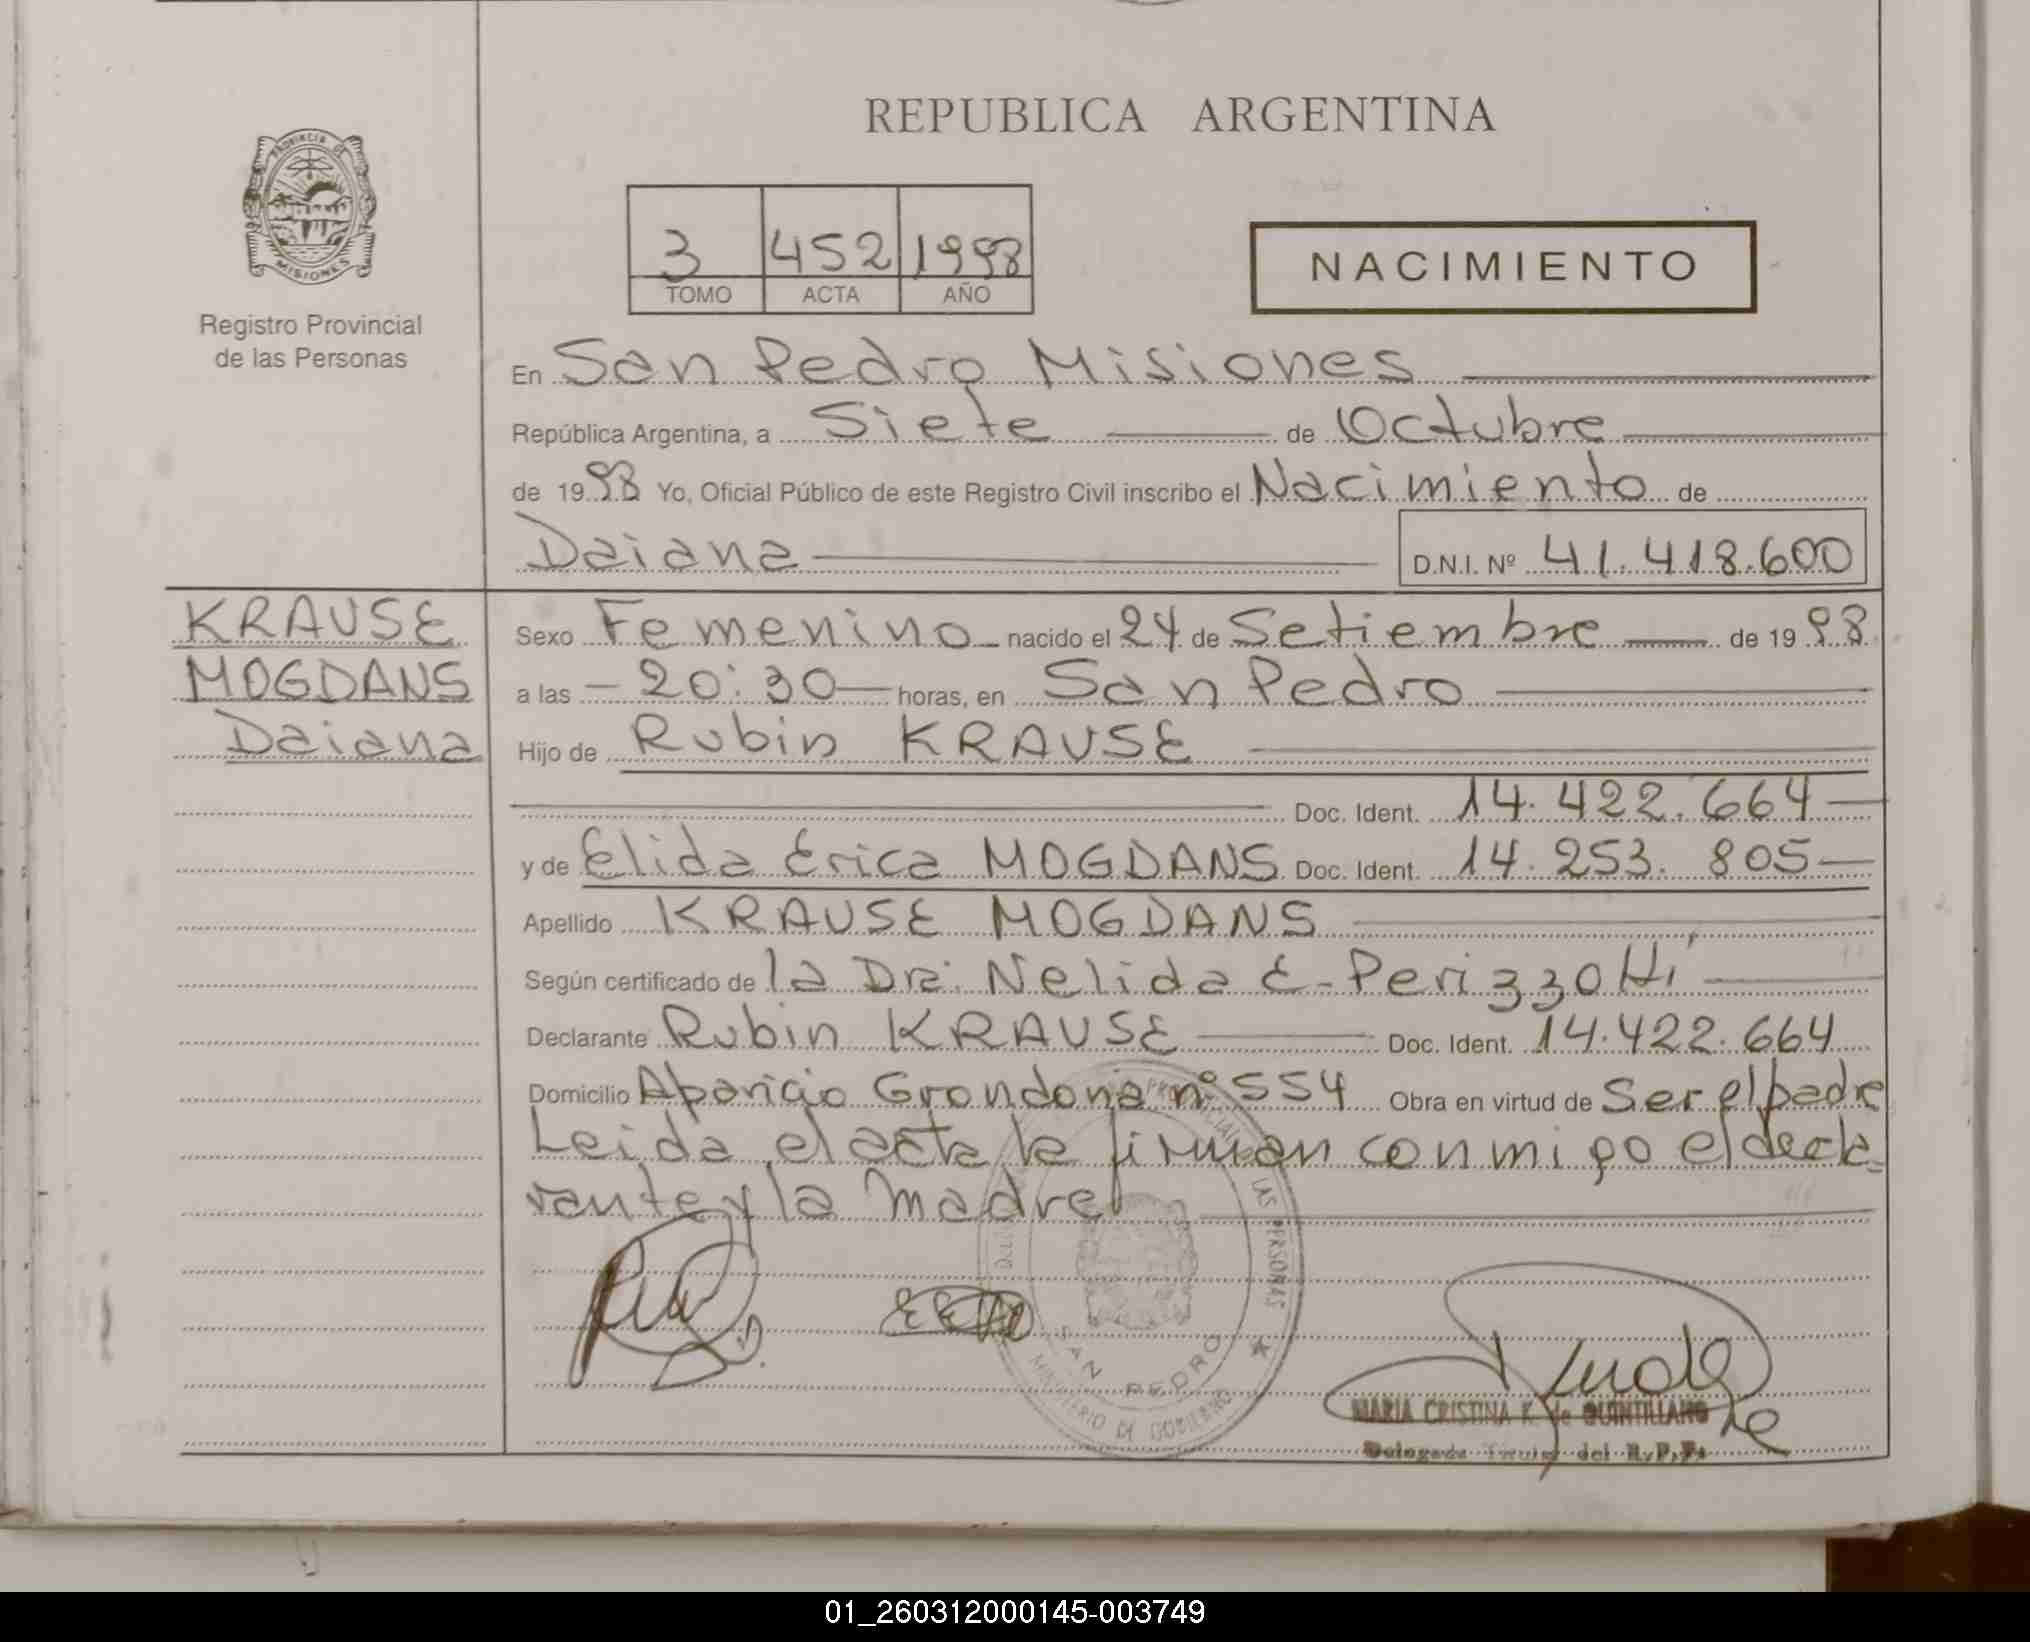 REPUBLICA ARGENTINA
PROVINCIA DE
MISIONES
Registro Provincial
de las Personas
3 452 1998
TOMO ACTA AÑO
NACIMIENTO
En San Pedro Misiones
República Argentina, a Siete de Octubre
de 1998 Yo, Oficial Público de este Registro Civil inscribo el Nacimiento de
Daiana D.N.I. Nº 41.418.600
KRAUSE
MOGDANS
Daiana
Sexo Femenino nacido el 24 de Setiembre de 1998
a las 20:30 horas, en San Pedro
Hijo de Rubin KRAUSE
Doc. Ident. 14.422.664
y de Elida Erica MOGDANS Doc. Ident. 14.253.805
Apellido KRAUSE MOGDANS
Según certificado de la Dra. Nelida E. Perizzotti
Declarante Rubin KRAUSE Doc. Ident. 14.422.664
Domicilio Aparicio Grondona nº 554 Obra en virtud de Ser el padre
Leida el acta la firman conmigo el decla-
rante y la madre
LAS PERSONAS
SAN PEDRO
MINISTERIO DE GOBIERNO
MARIA CRISTINA K. de QUINTILLANO
Delegada Titular del R.P.P.
01_260312000145-003749